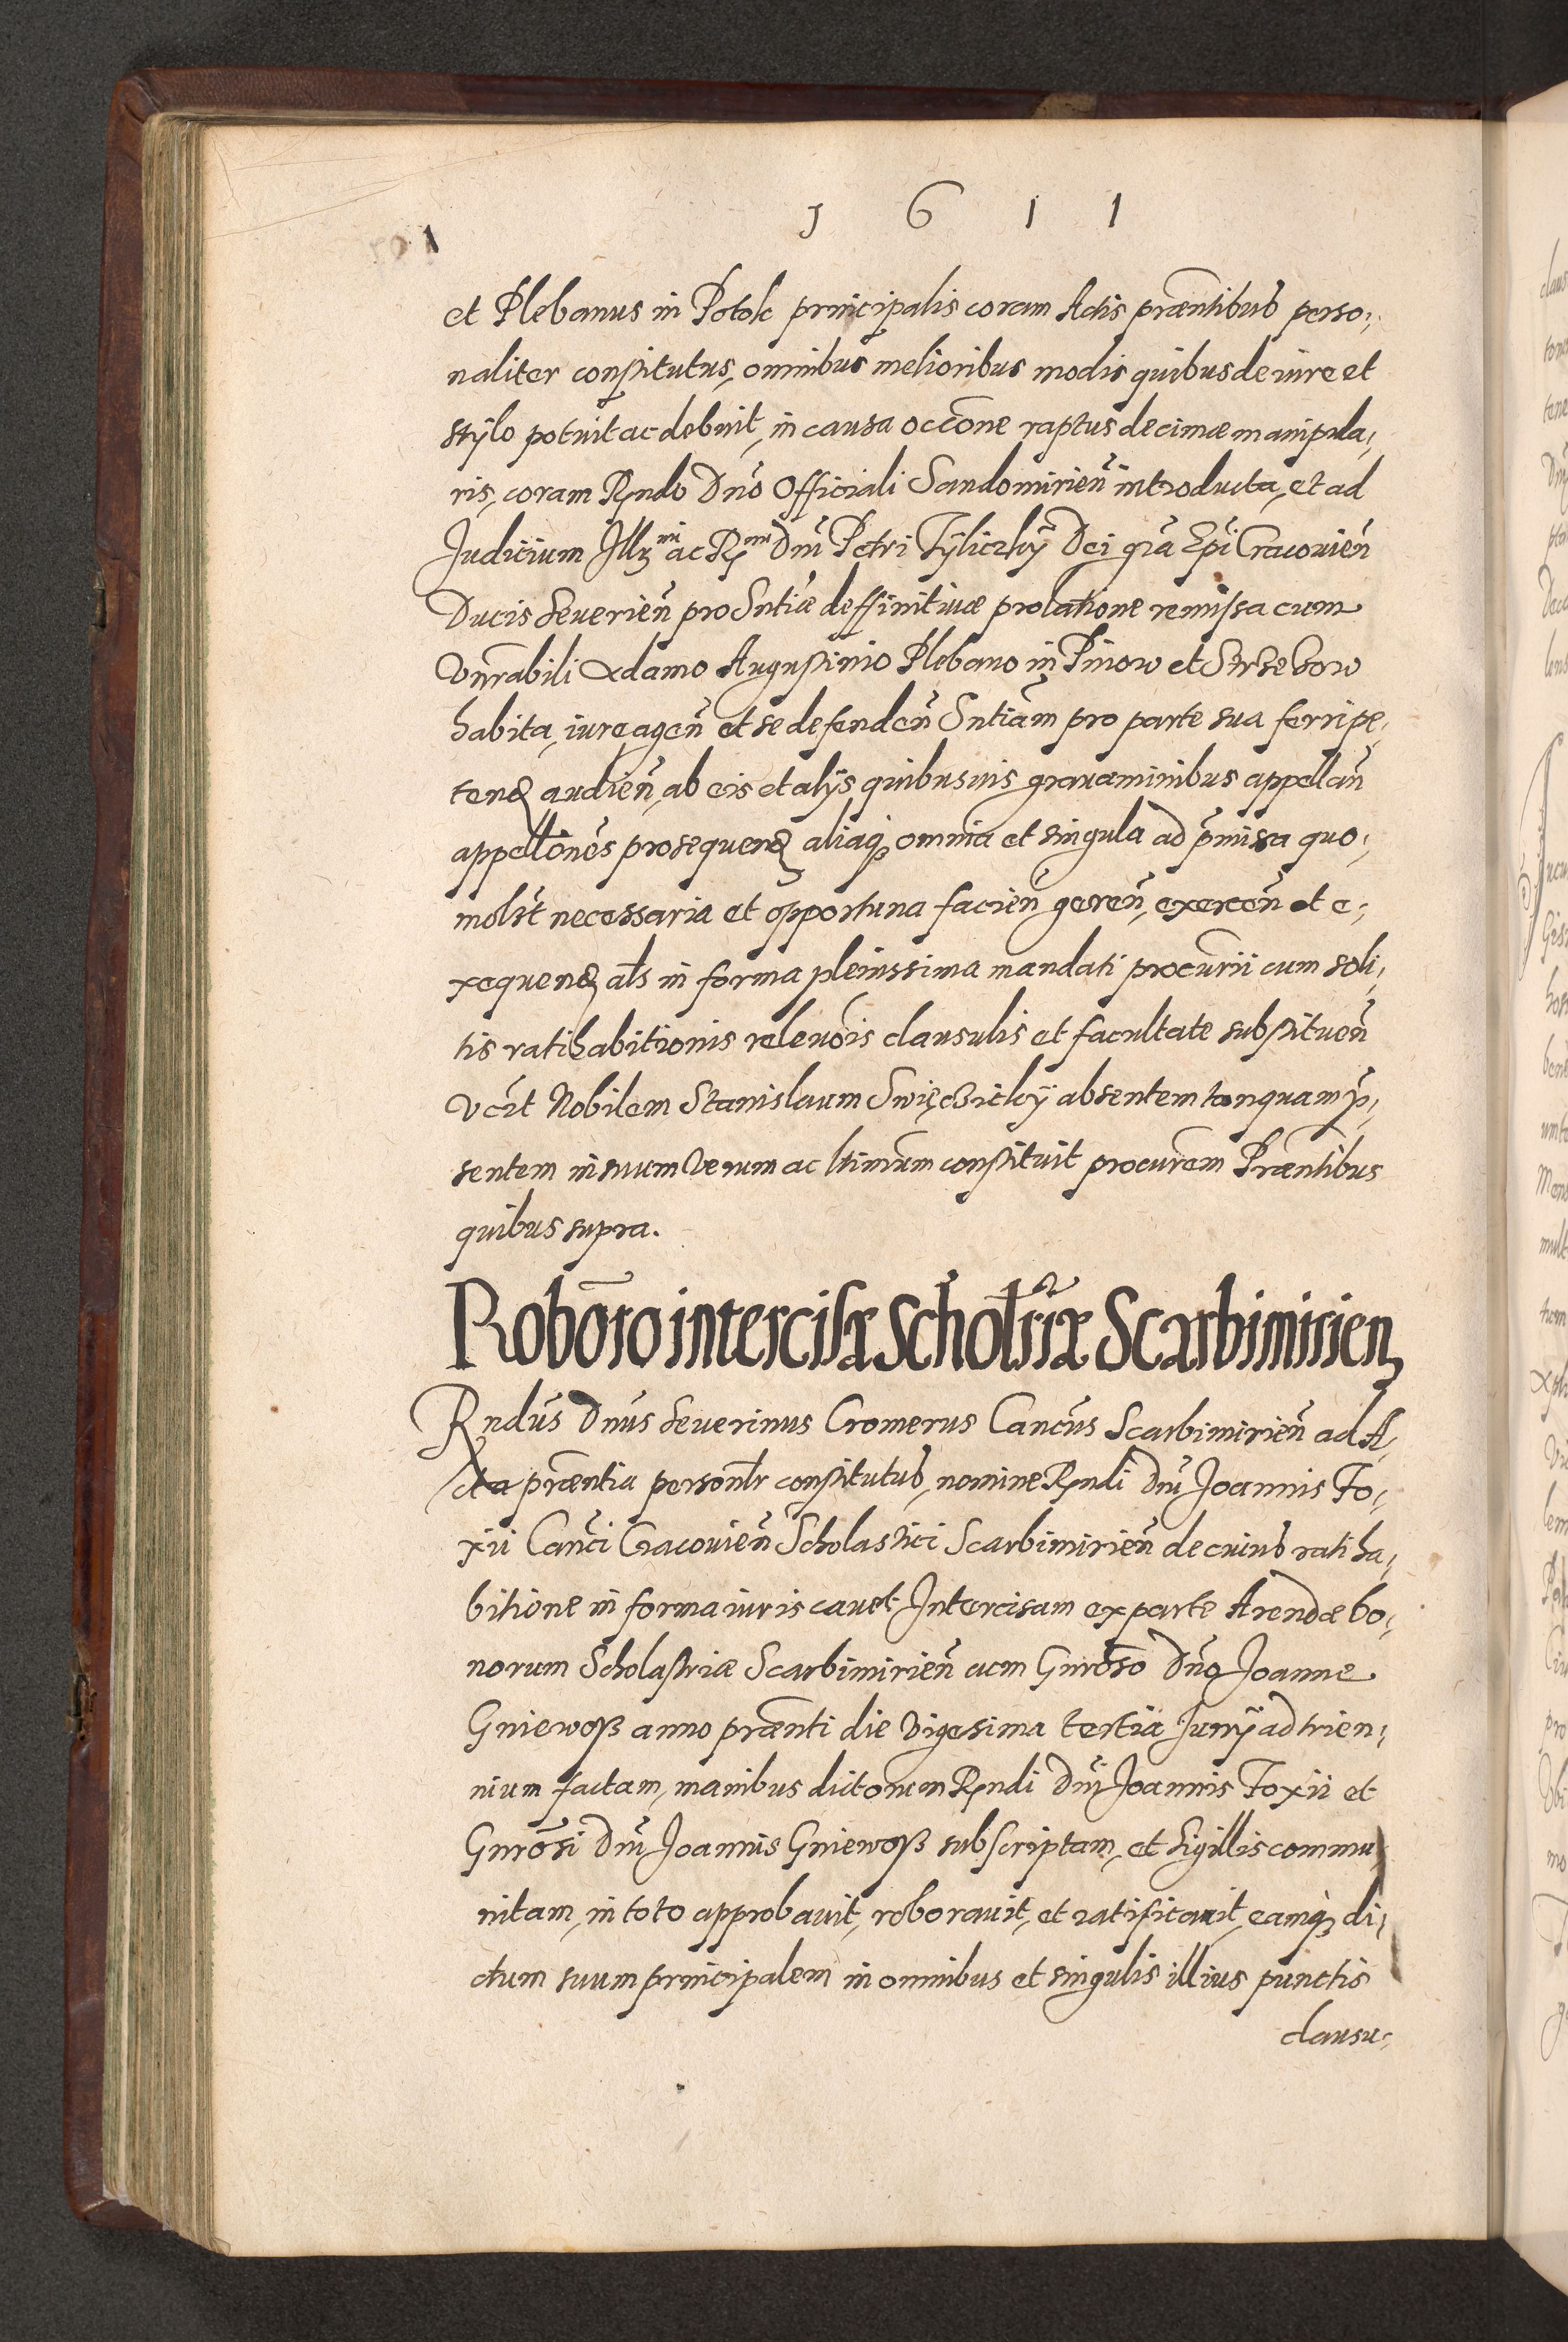 1 6 1 1
et Plebanus in Potok principalis coram Actis præntibus perso,
naliter constitutus, omnibus melioribus modis quibus de iure et
stylo potuit ac debuit, in causa occõne raptus decimæ manipula,
ris, coram Rndo Dno Officiali Sandomirien introducta, et ad
Judicium Illmi ac Rmi Dni Petri Tÿliczkÿ Dei gra Epi Cracouien
Ducis Seuerien pro Sntiæ deffinitiuæ prolatione remissa cum
Vnrabili Adamo Augustinio Plebano in Pniow et
habita, iure agen et se defenden Sntiam pro parte sua ferri pe,
tend audien, ab eis et alÿs quibusuis grauaminibus appellan
appellones prosequend aliaq omnia et singula ad pmissa quo,
molrt necessaria et opportuna facien geren, exercen et e,
xequend als in forma plenissima mandati procurii cum soli,
tis ratihabitionis releuois clausulis et facultate substituen
Vczt Nobilem Stanislaum Swięczickÿ absentem tanquam p,
sentem in suum Verum ac ltimum constituit procurem Præntibus
quibus supra.
Roboro intercisæ Scholriæ Scarbimirien
Rndus Dnus Seuerinus Cromerus Cancus Scarbimirien ad A,
cta præntia personlr constitutus, nomine Rndi Dni Joannis Fo,
xii Canci Cracouien Scholastici Scarbimirien de cuius rati ha,
bitione in forma iuris cauet Intercisam ex parte Arendæ bo,
norum Scholastriæ Scarbimirien cum Gnroso Dno Joanne
Gniewosz anno prænti die Vigesima tertia Junÿ ad trien,
nium factam, manibus dictorum Rndi Dni Joannis Foxii et
Gnrosi Dni Joannis Gniewosz subscriptam, et sigillis commu,
nitam, in toto approbauit, roborauit, et ratificauit, eamq di,
ctum suum principalem in omnibus et singulis illius punctis
clausu,